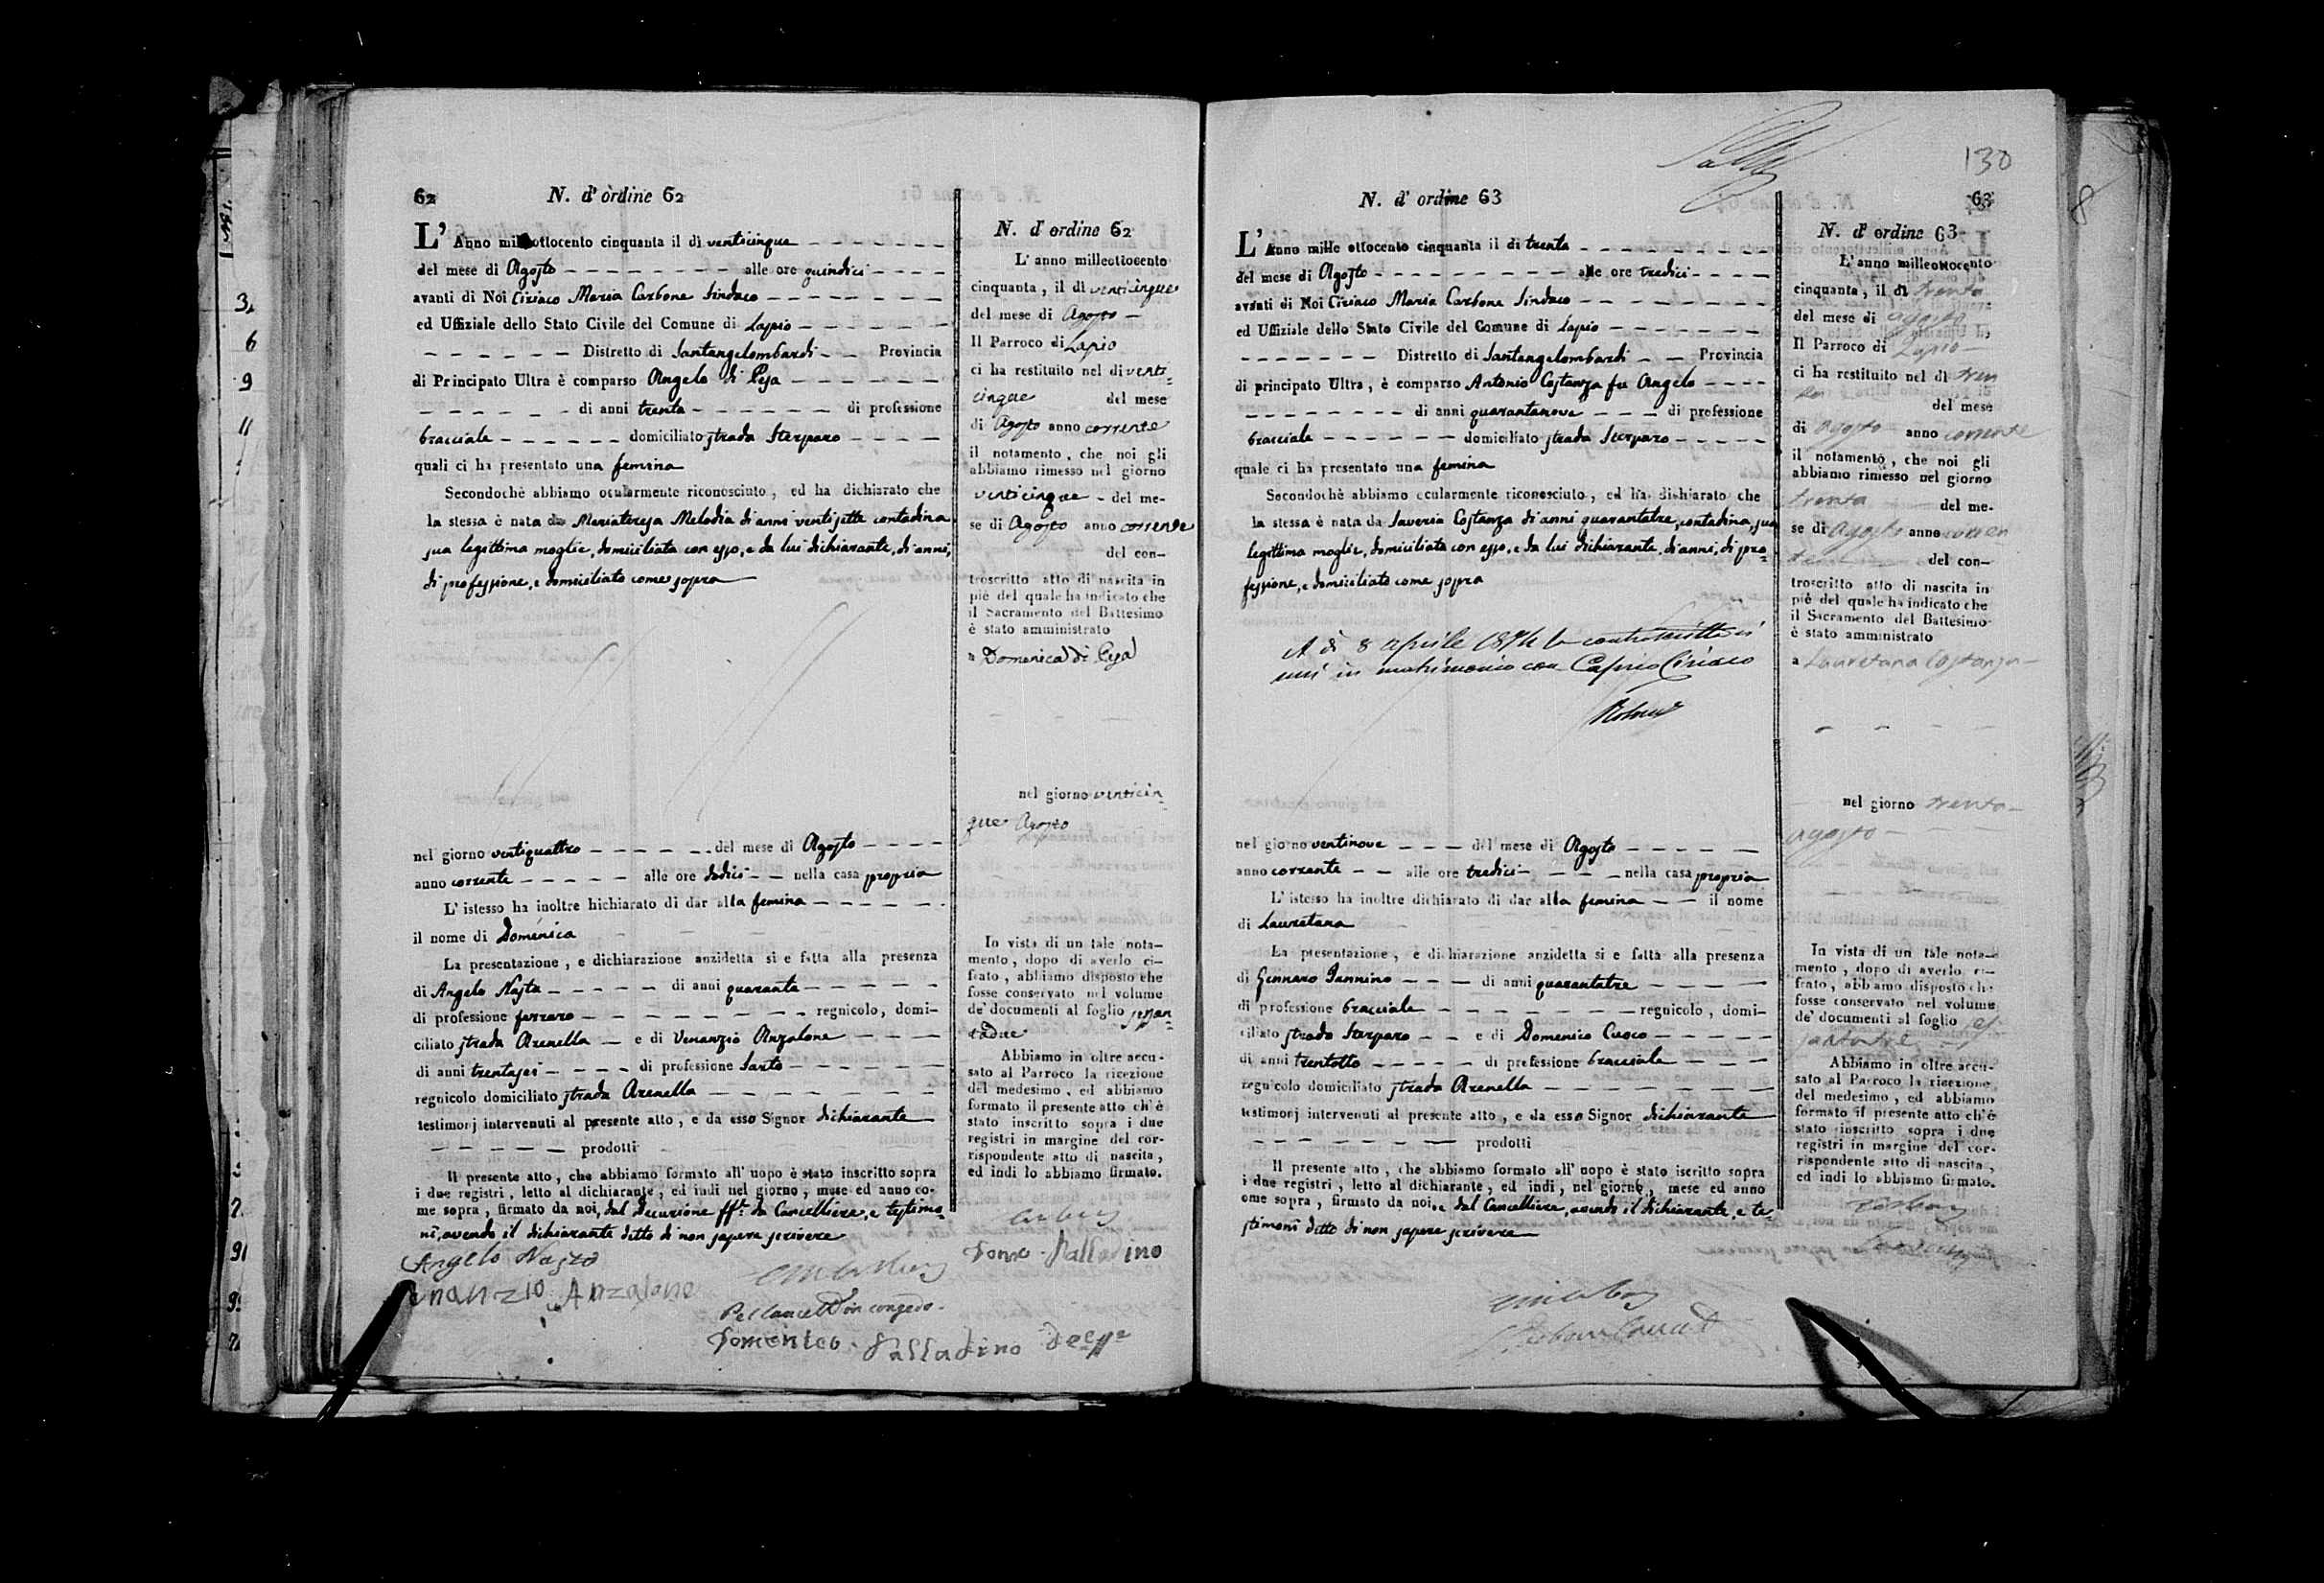 62 N. d' òrdine 62
L' Anno milleottocento cinquanta il dì venticinque
del mese di Agosto alle ore quindici
avanti di Noi Ciriaco Maria Carbone Sindaco
ed Uffiziale dello Stato Civile del Comune di Lapio
Distretto di Santangelombardi Provincia
di Principato Ultra è comparso Angelo di Pesa
di anni trenta di professione
bracciale domiciliato strada Sterparo
quali ci ha presentato una femina
Secondochè abbiamo ocularmente riconosciuto, ed ha dichiarato che
la stessa è nata da Mariateresa Melodia di anni ventisette contadina
sua legittima moglie, domiciliata con esso, e da lui dichiarante, di anni,
di professione, e domiciliato come sopra
nel giorno ventiquattro del mese di Agosto
anno corrente alle ore dodici nella casa propria
L' istesso ha inoltre hichiarato di dar alla femina
il nome di Domenica
La presentazione, e dichiarazione anzidetta si e fatta alla presenza
di Angelo Nasta di anni quaranta
di professione ferraro regnicolo, domi-
ciliato strada Arenella e di Venanzio Anzalone
di anni trentasei di professione Sarto
regnicolo domiciliato strada Arenella
testimonj intervenuti al presente atto, e da esso Signor dichiarante
prodotti
Il presente atto, che abbiamo formato all' uopo è stato inscritto sopra
i due registri, letto al dichiarante, ed indi nel giorno, mese ed anno co-
me sopra, firmato da noi, dal Decurione ff.e da Cancelliere, e testimo-
nî, avendo il dichiarante ditto di non sapere scrivere
Angelo Nasta
enanzio Anzalone
Pel Cancell in congedo
Domenico Palladino Dec ff
N. d' ordine 62
L' anno milleottocento
cinquanta, il dì venticinque
del mese di Agosto
Il Parroco di Lapio
ci ha restituito nel dì venti-
cinque del mese
di Agosto anno corrente
il notamento, che noi gli
abbiamo rimesso nel giorno
venticinque del me-
se di Agosto anno corrente
del con-
troscritto atto di nascita in
piè del quale ha indicato che
il Sacramento del Battesimo
è stato amministrato
a Domenica di Pesa
nel giorno venticin
que Agosto
In vista di un tale nota-
mento, dopo di averlo ci-
frato, abbiamo disposto che
fosse conservato nel volume
de' documenti al foglio sessan-
tadue
Abbiamo in oltre accu-
sato al Parroco la ricezione
del medesimo, ed abbiamo
formato il presente atto ch' è
stato inscritto sopra i due
registri in margine del cor-
rispondente atto di nascita,
ed indi lo abbiamo firmato.
Dome. Palladino
130
N. d' ordine 63 63
L' Anno mille ottocento cinquanta il di trenta
del mese di Agosto alle ore tredici
avanti di Noi Ciriaco Maria Carbone Sindaco
ed Uffiziale dello Stato Civile del Comune di Lapio
Distretto di Santangelombardi Provincia
di principato Ultra, è comparso Antonio Costanza fu Angelo
di anni quarantanove di professione
bracciale domiciliato strada Sterparo
quale ci ha presentato una femina
Secondochè abbiamo ocularmente riconosciuto, ed ha dichiarato che
la stessa è nata da Saveria Costanza di anni quarantatre, contadina, sua
legittima moglie, domiciliata con esso, e da lui dichiarante, di anni, di pro-
fessione, e domiciliato come sopra
A dì 8 aprile 1874 la controscritta si
unì in matrimonio con Caprio Ciriaco
nel giorno ventinove del mese di Agosto
anno corrente alle ore tredici nella casa propria
L' istesso ha inoltre dichiarato di dar alla femina il nome
di Lauretana
La presentazione, e dichiarazione anzidetta si e fatta alla presenza
di Gennaro Iannino di anni quarantatre
di professione bracciale regnicolo, domi-
ciliato strada Sterparo e di Domenico Cuoco
di anni trentotto di professione bracciale
regnicolo domiciliato strada Arenella
testimonj intervenuti al presente atto, e da esso Signor dichiarante
prodotti
Il presente atto, che abbiamo formato all' uopo è stato iscritto sopra
i due registri, letto al dichiarante, ed indi, nel giorno, mese ed anno
ome sopra, firmato da noi, e dal Cancelliere, avendo il dichiarante, e te-
stimonî ditto di non sapere scrivere
N. d' ordine 63
L' anno milleottocento
cinquanta, il dì trenta
del mese di agosto
Il Parroco di Lapio
ci ha restituito nel dì tren
ta del mese
di Agosto anno corrente
il notamento, che noi gli
abbiamo rimesso nel giorno
trenta del me-
se di Agosto anno corren
te del con-
troscritto atto di nascita in
piè del quale ha indicato che
il Sacramento del Battesimo
è stato amministrato
a Lauretana Costanza
nel giorno trenta
agosto
In vista di un tale nota-
mento, dopo di averlo ci-
frato, abbiamo disposto che
fosse conservato nel volume
de' documenti al foglio ses
santatre
Abbiamo in oltre accu-
sato al Parroco la ricezione
del medesimo, ed abbiamo
formato il presente atto ch' è
stato inscritto sopra i due
registri in margine del cor-
rispondente atto di nascita,
ed indi lo abbiamo firmato.